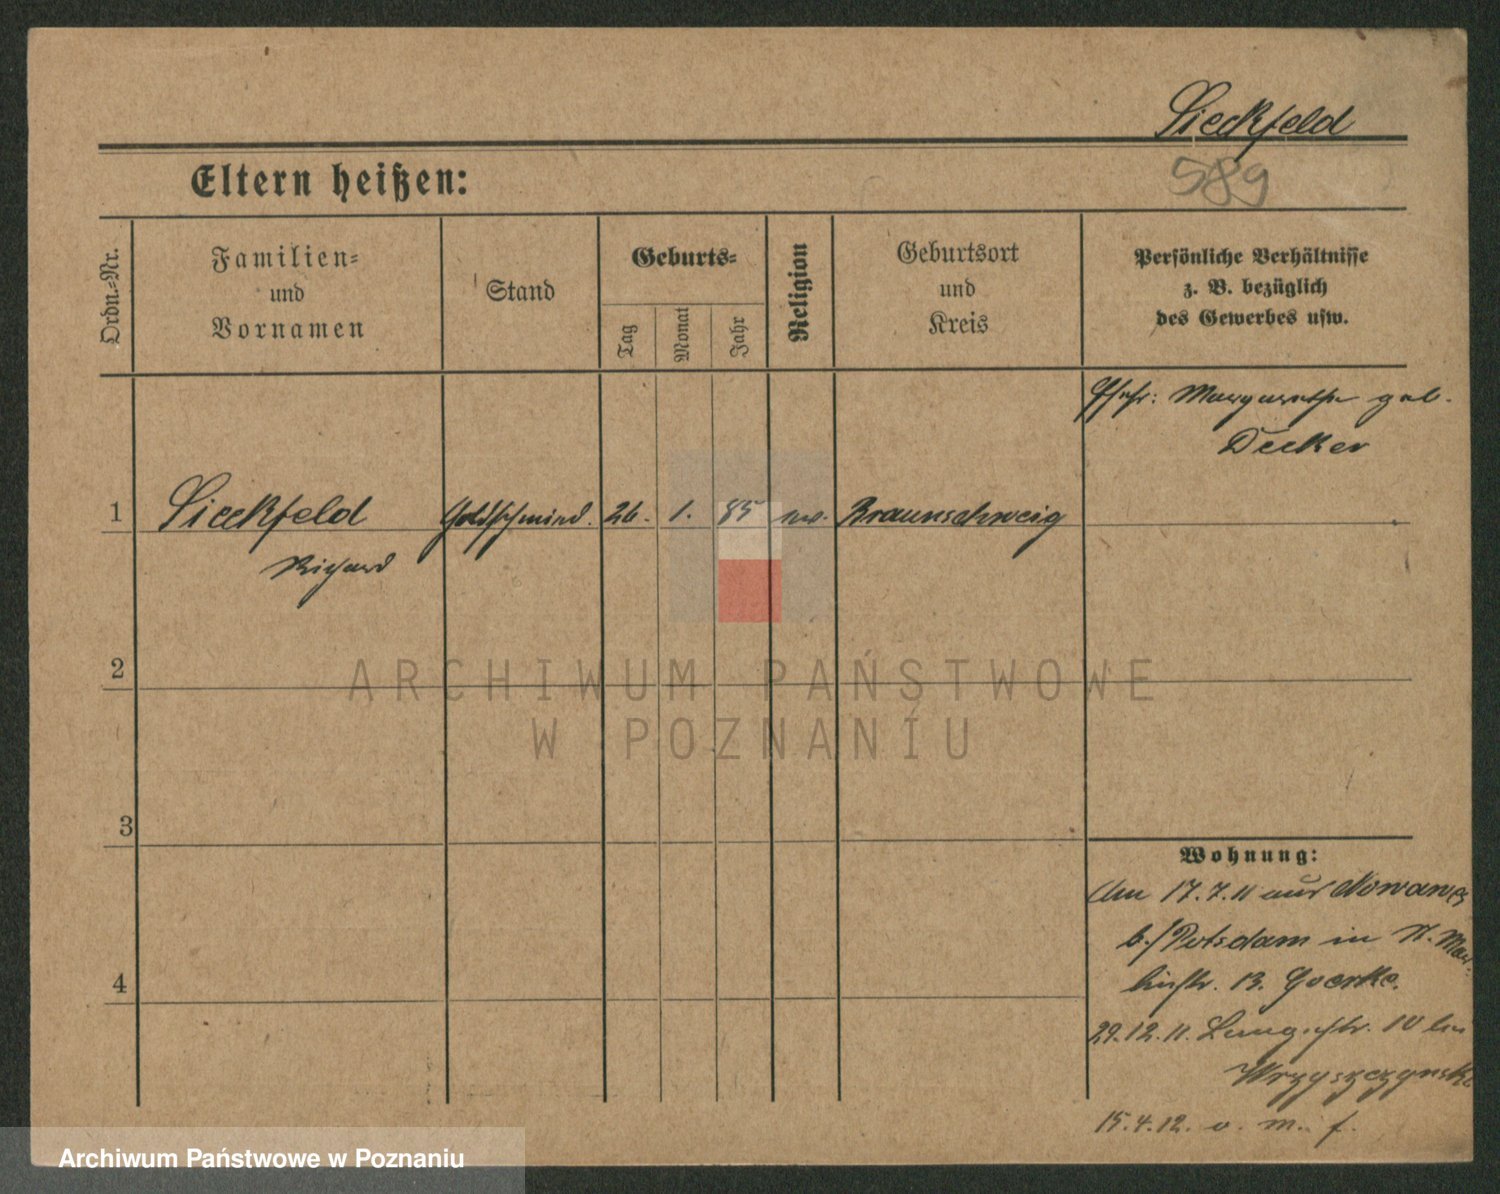 Sieckfeld
589
Eltern heißen:
Ordn.-Nr.
Familien-
und
Vornamen
Stand
Geburts-
Tag
Monat
Jahr
Religion
Geburtsort
und
Kreis
Persönliche Verhältnisse
z. B. bezüglich
des Gewerbes usw.
Ehefr: Margarethe geb.
Decker
1 Sieckfeld Goldschmied. 26. 1. 85 ev. Braunschweig
Richard
2
ARCHIWUM PAŃSTWOWE
W POZNANIU
3
4
Wohnung:
Am 17.7.11 aus Nowawes
b./Potsdam in St. Mar-
tinstr. 13. Goerke.
29.12.11. Langestr. 10 bei
Wrzyszczynski
15.4.12. v. m. f.
Archiwum Państwowe w Poznaniu